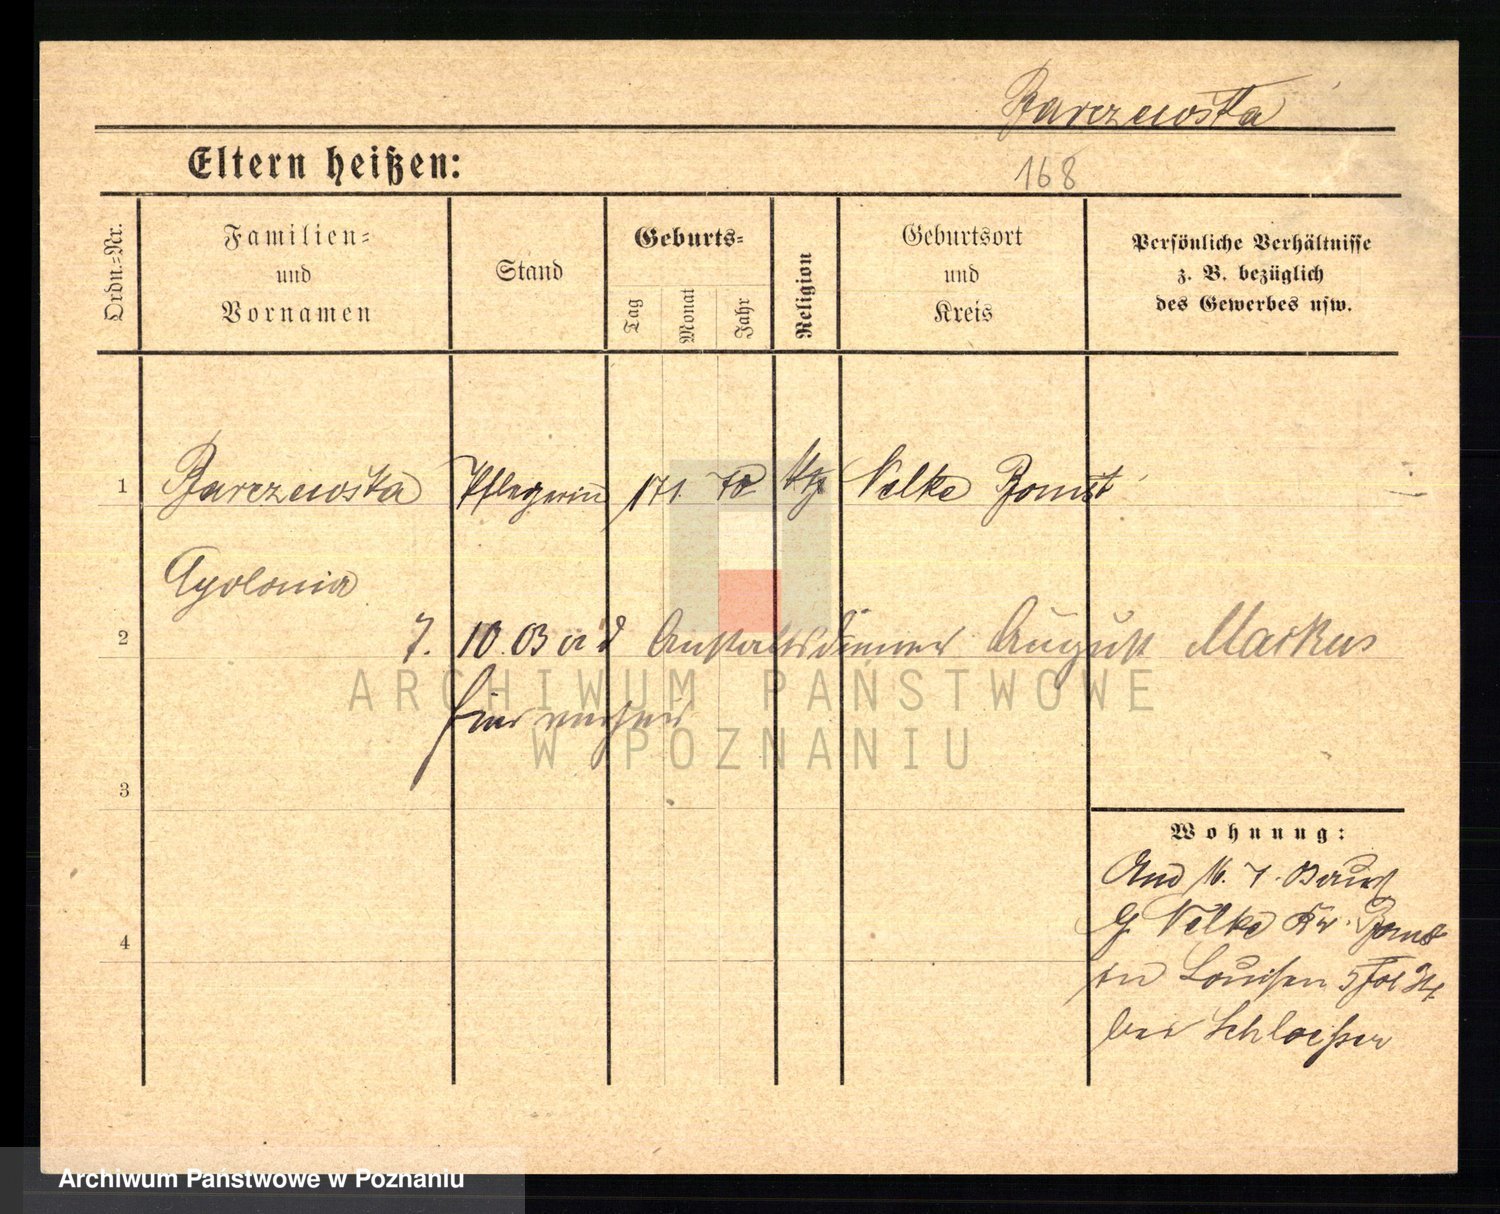 Barczewska
Eltern heißen:
168
Ordn.-Nr.
Familien-
und
Vornamen
Stand
Geburts-
Tag
Monat
Jahr
Religion
Geburtsort
und
Kreis
Persönliche Verhältnisse
z. B. bezüglich
des Gewerbes usw.
1 Barczewska Pflegerin 17 1. Nelke Bomst
Apolonia
2 7. 10. 03 Anstaltsdiener August Markus
hier
3
Wohnung:
7.
G Nelke Kr. Bomst
4
in Louisen
bei Schloesser
ARCHIWUM PAŃSTWOWE
W POZNANIU
Archiwum Państwowe w Poznaniu